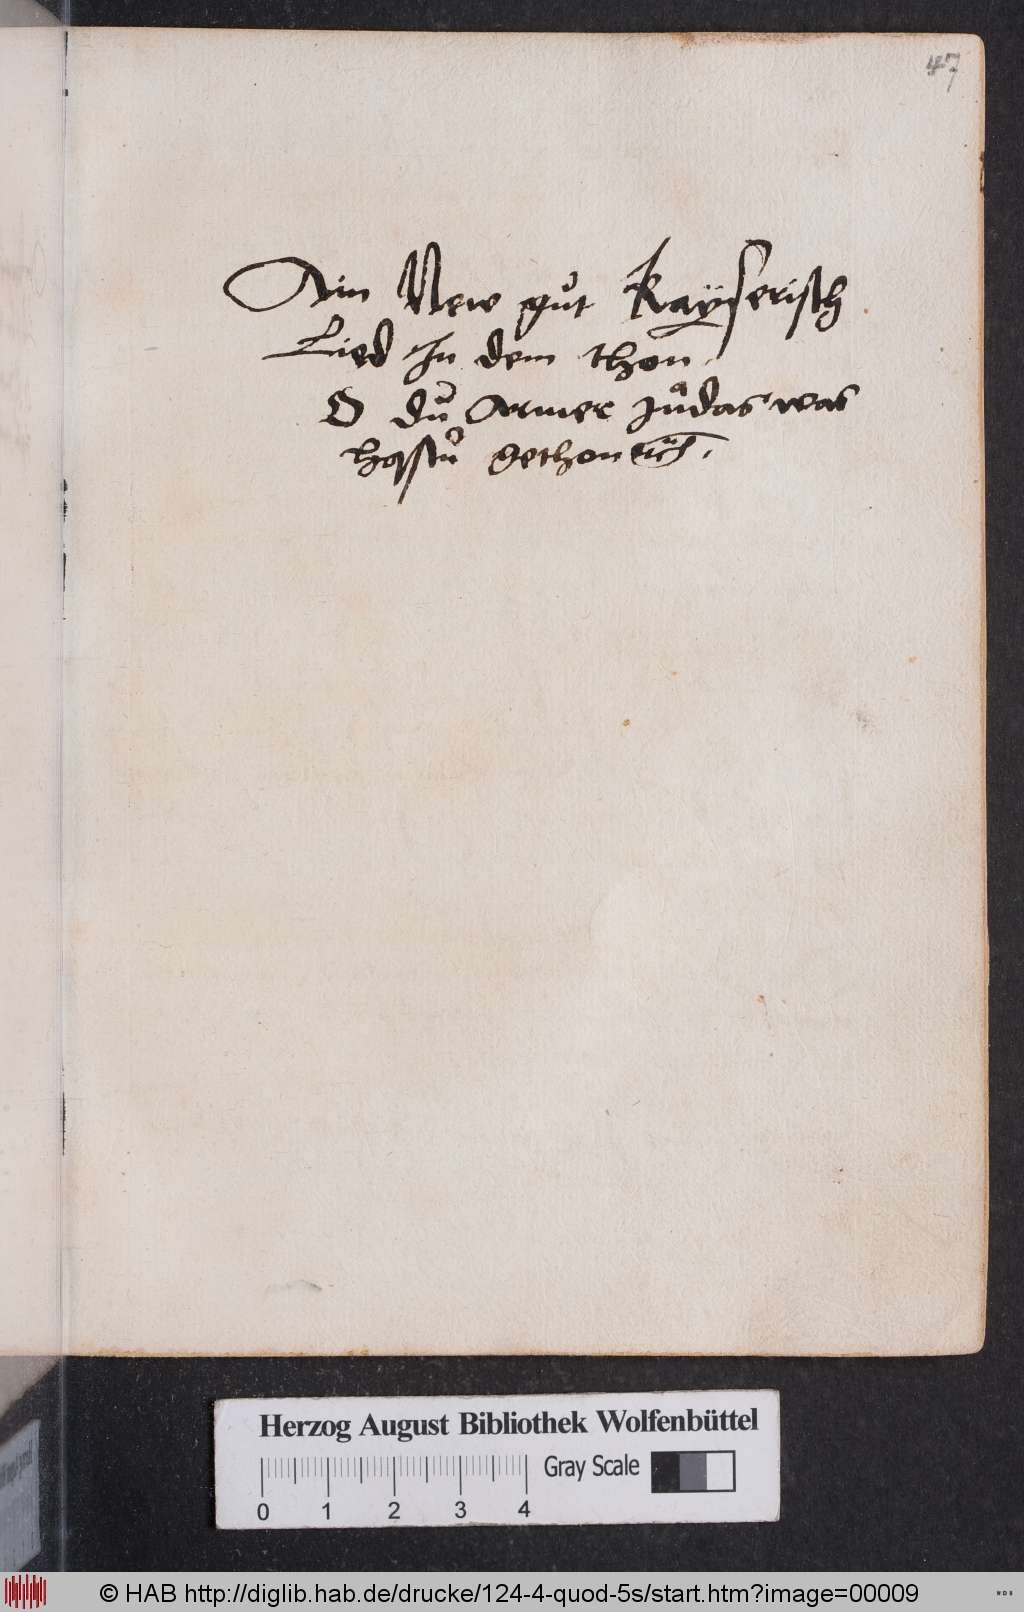 47
Ain New gůt Kaÿserisch
Lied In dem thon,
O dŭ Armer Jŭdas was
hastŭ gethon
Herzog August Bibliothek Wolfenbüttel
Gray Scale
0 1 2 3 4
© HAB http://diglib.hab.de/drucke/124-4-quod-5s/start.htm?image=00009